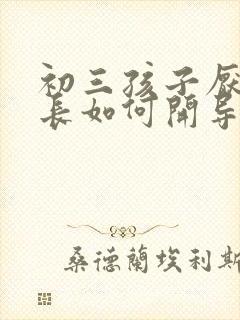 初三孩子厌
长如何開导
桑德蘭埃利斯